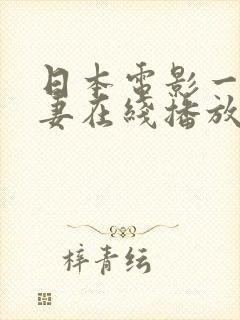 日本電影一
妻在綫播放
梓青纭